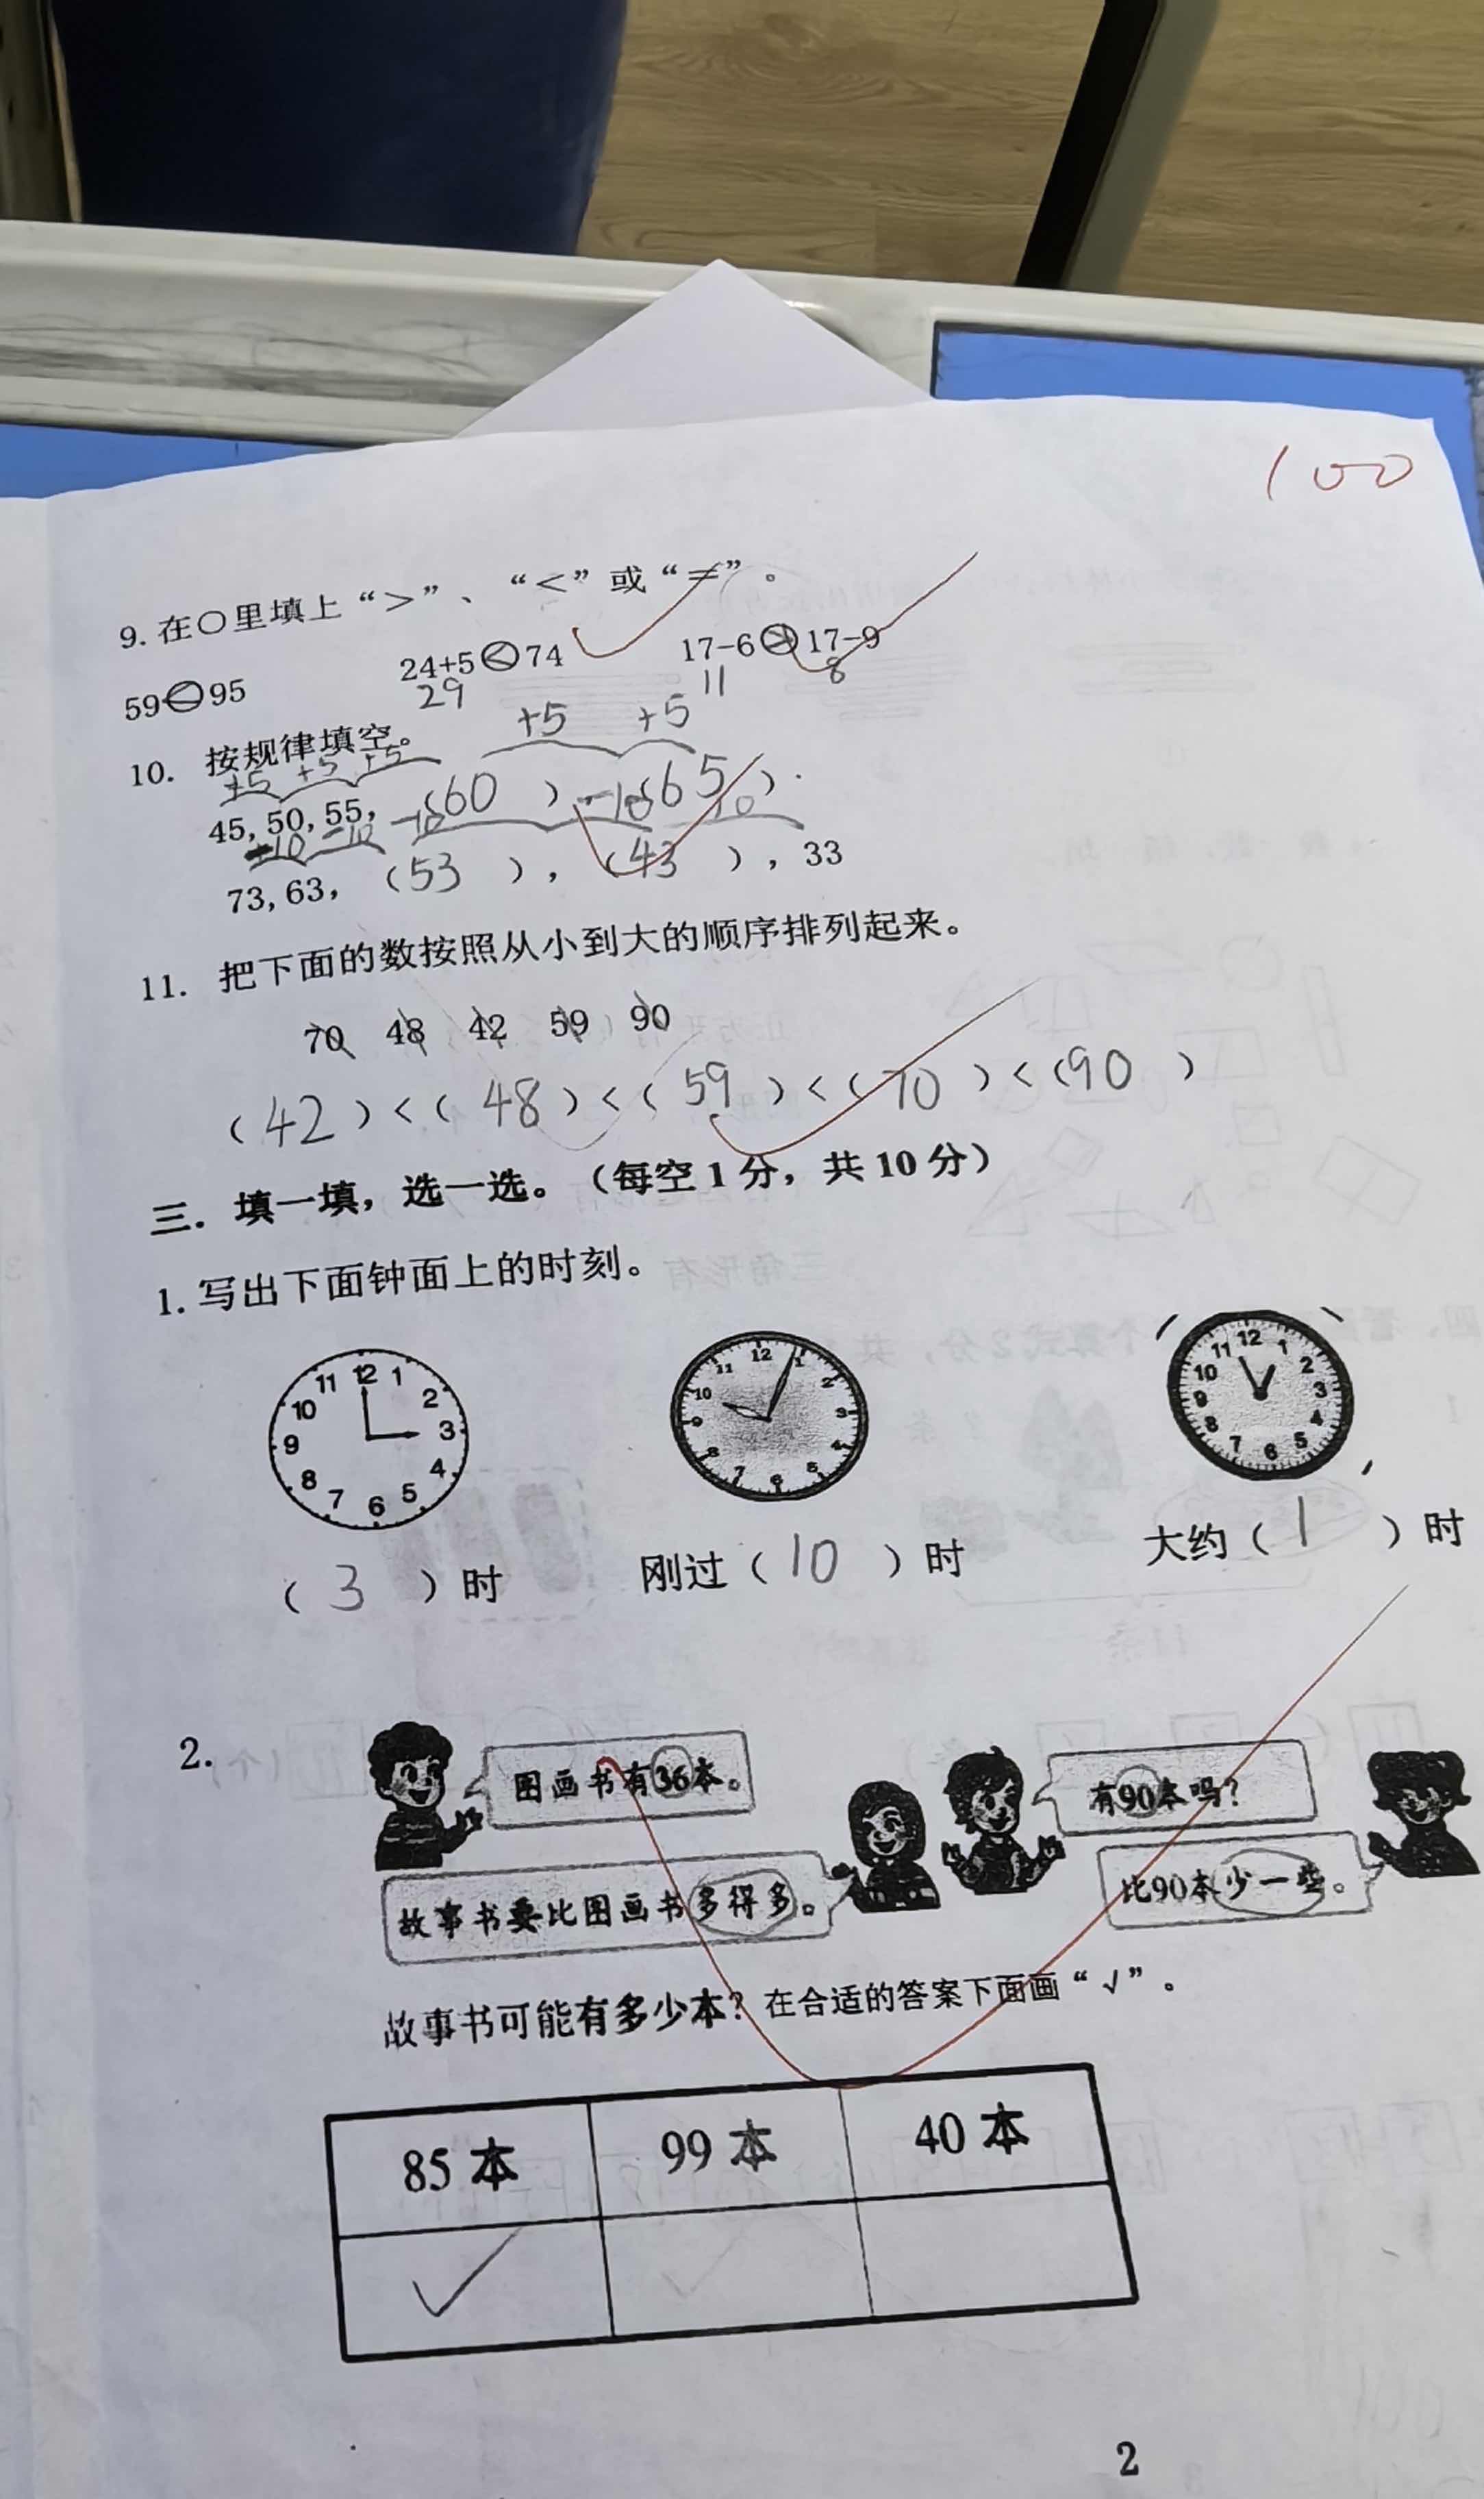 100
9. 在○里填上“>”、“<”或“=”。
59<95 24+5<74 17-6>17-9
29 11 8
10. 按规律填空。
+5 +5 +5 +5 +5
45, 50, 55, (60) (65)
-10 -10 -10 -10 10
73, 63, (53), (43), 33
11. 把下面的数按照从小到大的顺序排列起来。
70 48 42 59 90
(42)<(48)<(59)<(70)<(90)
三. 填一填，选一选。(每空1分，共10分)
1. 写出下面钟面上的时刻。
12 1 2 3 4 5 6 7 8 9 10 11
12 1 2 3 4 5 6 7 8 9 10 11
12 1 2 3 4 5 6 7 8 9 10 11
(3)时 刚过(10)时 大约(1)时
2.
图画书有36本。
有90本吗?
故事书要比图画书多得多。
比90本少一些。
故事书可能有多少本? 在合适的答案下面画“√”。
85本 99本 40本
√
2